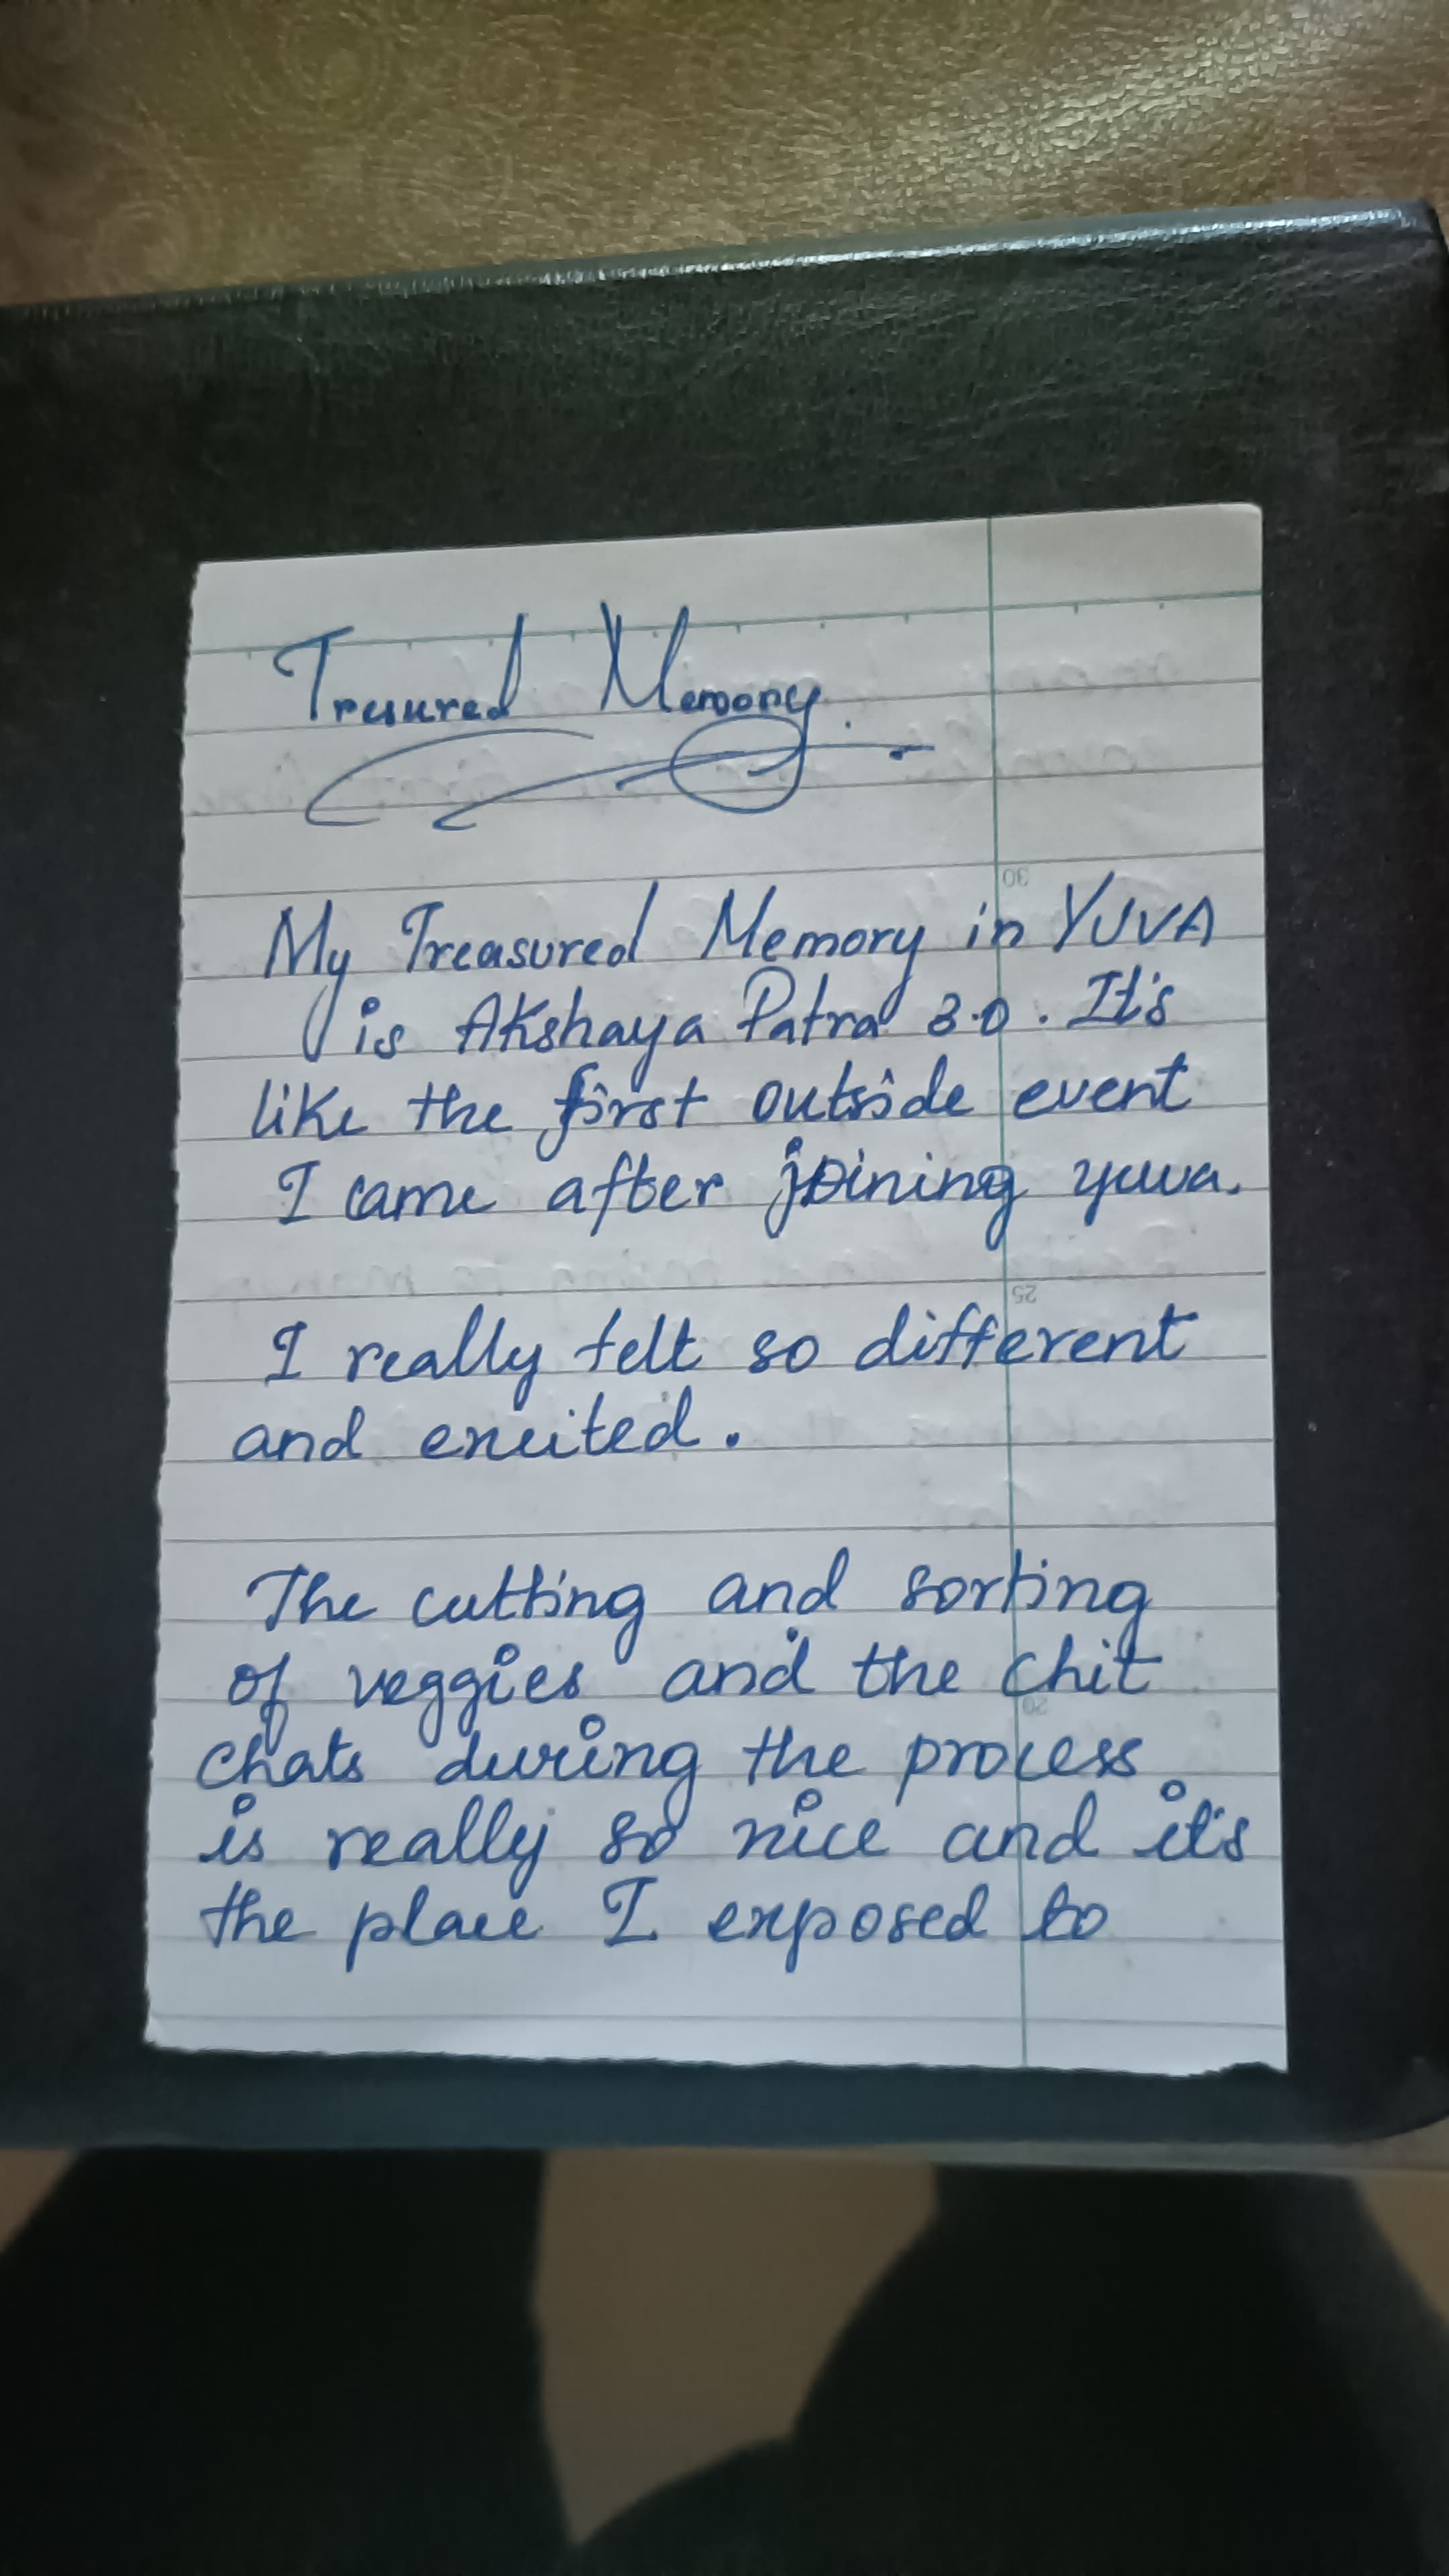 Tresured Memory.
My Treasured Memory in YUVA
is Akshaya Patra 3.0. It's
like the first outside event
I came after joining yuva.
I really felt so different
and excited.
The cutting and sorting
of veggies and the chit
chats during the process
is really so nice and it's
the place I exposed to
30
25
20